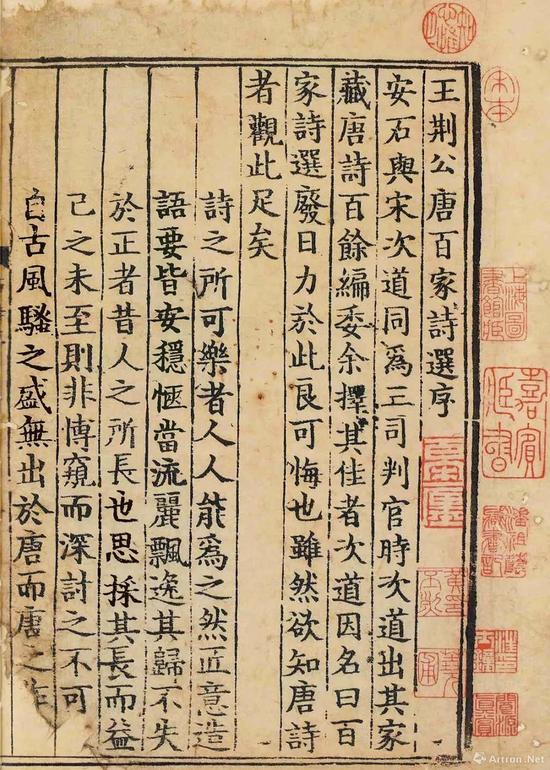 王荆公唐百家詩選序
安石與宋次道同爲三司判官時次道出其家
藏唐詩百餘編委余擇其佳者次道因名曰百
家詩選廢日力於此良可悔也雖然欲知唐詩
者觀此足矣
詩之所可樂者人人能爲之然匠意造
語要皆安穩愜當流麗飄逸其歸不失
於正者昔人之所長也思採其長而益
己之未至則非博窺而深討之不可
自古風騷之盛無出於唐而唐之作
宋本
上海圖
書館藏
嘉賓
藏書
Artron.Net